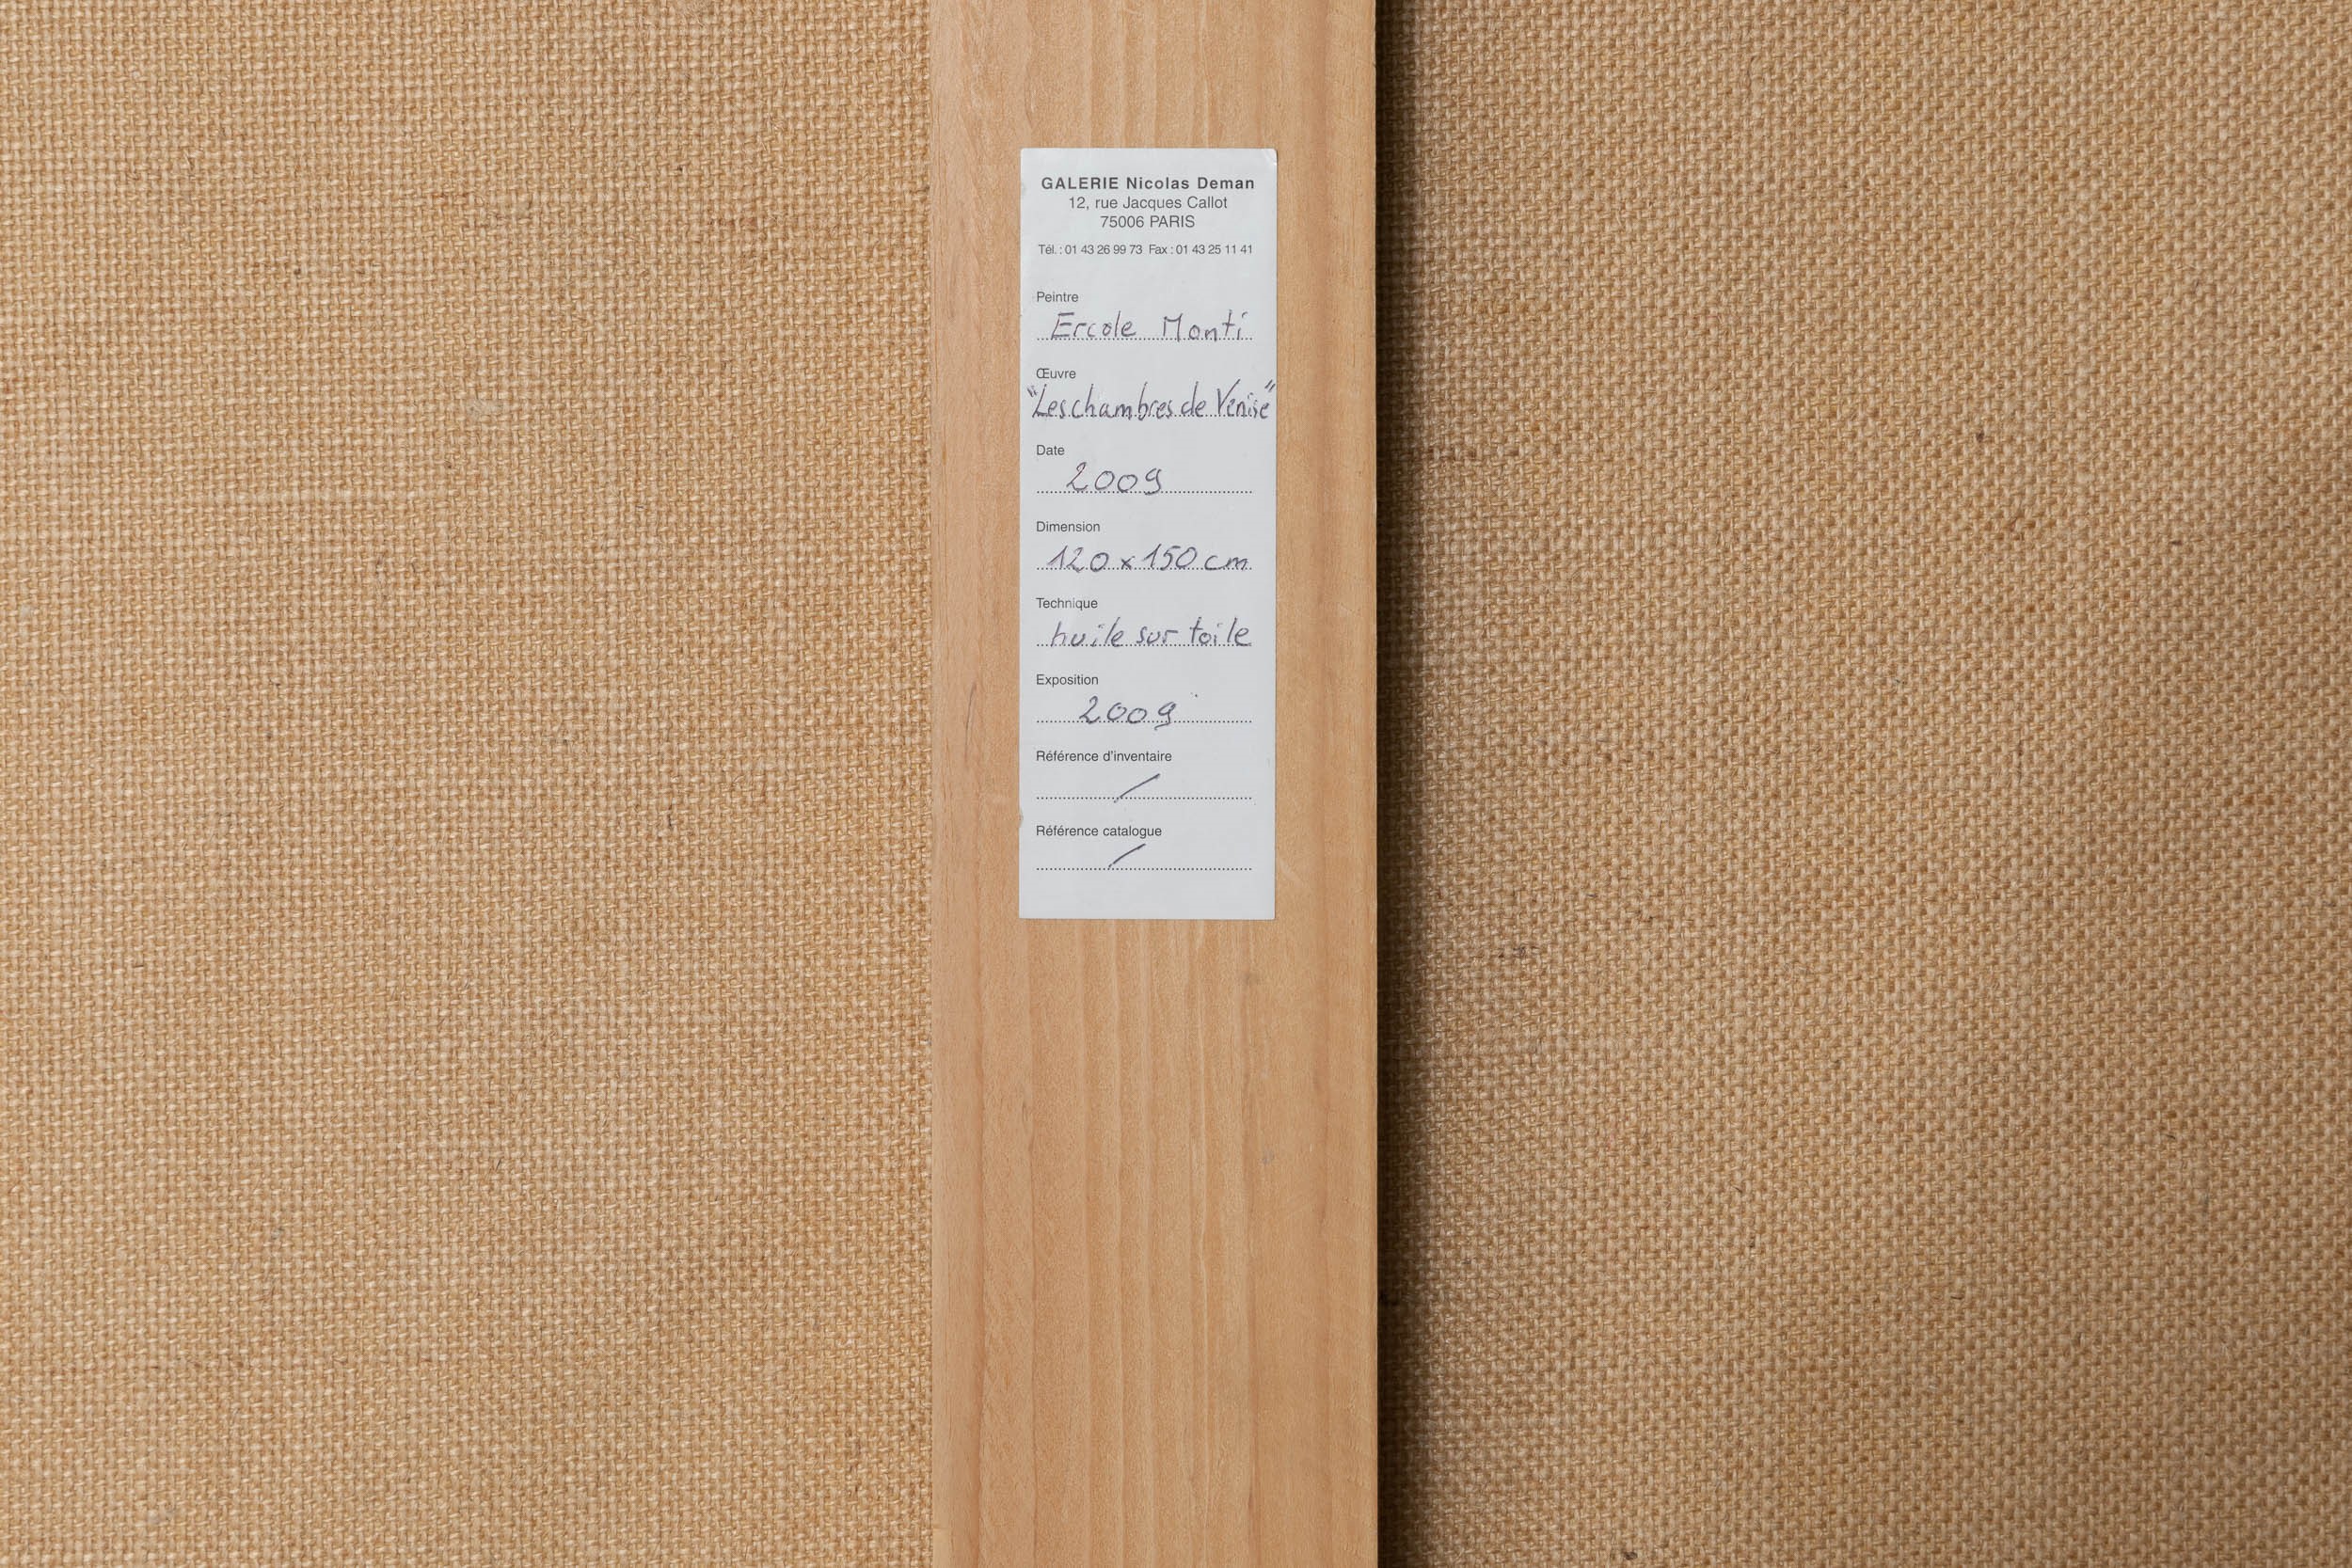 GALERIE Nicolas Deman
12, rue Jacques Callot
75006 PARIS
Tél. : 01 43 26 99 73 Fax : 01 43 25 11 41
Peintre
Ercole Monti
Œuvre
"Les chambres de Venise"
Date
2009
Dimension
120 x 150 cm
Technique
huile sur toile
Exposition
2009
Référence d'inventaire
/
Référence catalogue
/